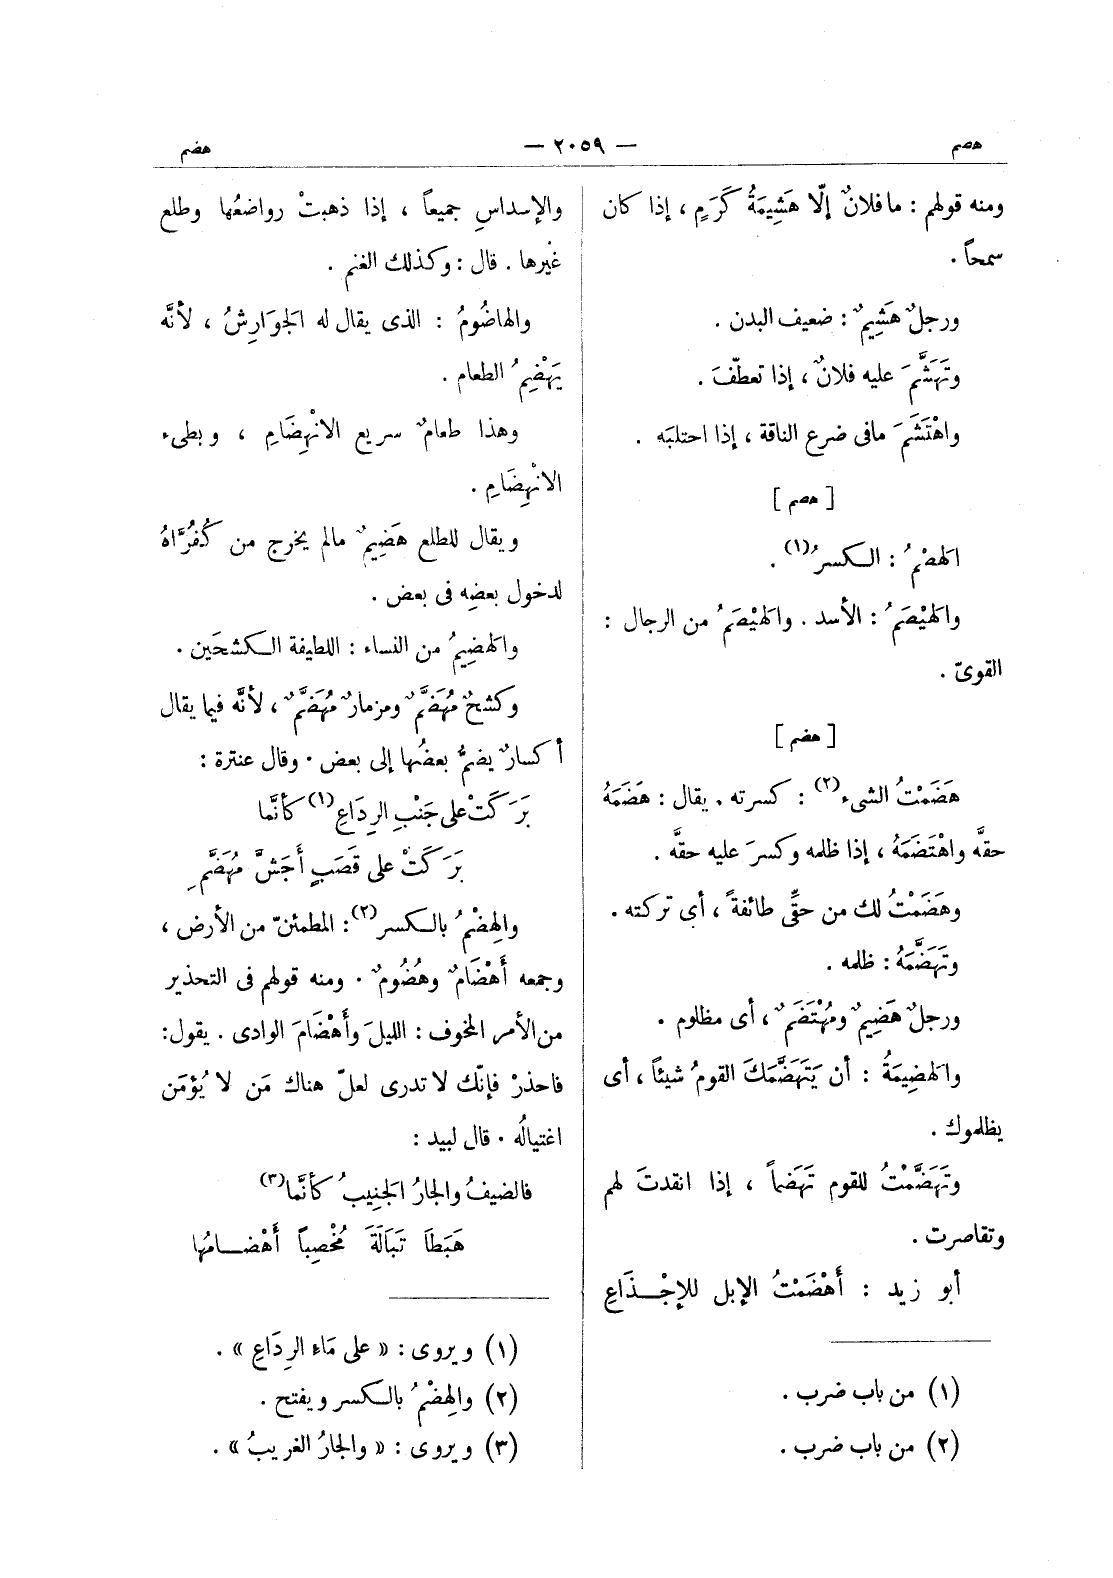 هصم — ٢٠٥٩ — هضم
ومنه قولهم : ما فلانٌ إلّا هَشِيمَةُ كَرَمٍ ، إذا كان
سمحاً .
ورجلٌ هَشِيمٌ : ضعيف البدن .
وتَهَشَّمَ عليه فلانٌ ، إذا تعطّفَ .
واهْتَشَمَ مافى ضرع الناقة ، إذا احتلبَه .
[ هصم ]
الهَصْمُ : الكسرُ (١) .
والهَيْصَمُ : الأسد . والهَيْصَمُ من الرجال :
القوىّ .
[ هضم ]
هَضَمْتُ الشىء (٢) : كسرته . يقال : هَضَمَهُ
حقَّه واهْتَضَمَهُ ، إذا ظلمه وكسرَ عليه حقَّه .
وهَضَمْتُ لك من حقِّى طائفةً ، أى تركته .
وتَهَضَّمَهُ : ظلمه .
ورجلٌ هَضِيمٌ ومُهْتَضَمٌ ، أى مظلوم .
والهَضِيمَةُ : أن يَتَهَضَّمَكَ القومُ شيئاً ، أى
يظلموك .
وتَهَضَّمْتُ للقوم تَهَضّماً ، إذا انقدتَ لهم
وتقاصرت .
أبو زيد : أَهْضَمْتُ الإبل للإجْذَاعِ
(١) من باب ضرب .
(٢) من باب ضرب .
والإسداسِ جميعاً ، إذا ذهبتْ رواضعُها وطلع
غيْرها . قال : وكذلك الغنم .
والهاضُومُ : الذى يقال له الجَوَارِشُ ، لأنَّه
يَهْضِمُ الطعام .
وهذا طعامٌ سريع الانْهِضَامِ ، وبطىء
الانْهِضَامِ .
ويقال للطلع هَضِيمٌ مالم يخرج من كُفُرَّاهُ
لدخول بعضِه فى بعض .
والهَضِيمُ من النساء : اللطيفة الكشحَين .
وكشحٌ مُهَضَّمٌ ومزمارٌ مُهَضَّمٌ ، لأنَّه فيما يقال
أكسارٌ يضمُّ بعضُها إلى بعض . وقال عنترة :
بَرَكَتْ على جَنْبِ الرِدَاعِ (١) كأنَّما
بَرَكَتْ على قَصَبٍ أَجَشَّ مُهَضَّمِ
والهِضْمُ بالكسر (٢) : المطمئنّ من الأرض ،
وجمعه أَهْضَامٌ وهُضُومٌ . ومنه قولهم فى التحذير
من الأمر المخوف : الليلَ وأَهْضَامَ الوادى . يقول :
فاحذرْ فإنّك لا تدرى لعلّ هناك مَن لا يُؤمَن
اغتيالُه . قال لبيد :
فالضيفُ والجارُ الجَنِيبُ كأنَّما (٣)
هَبَطَا تَبَالَةَ مُخْصِباً أَهْضَامُها
(١) ويروى : « على مَاءِ الرِدَاعِ » .
(٢) والهِضْمُ بالكسر ويفتح .
(٣) ويروى : « والجارُ الغريبُ » .